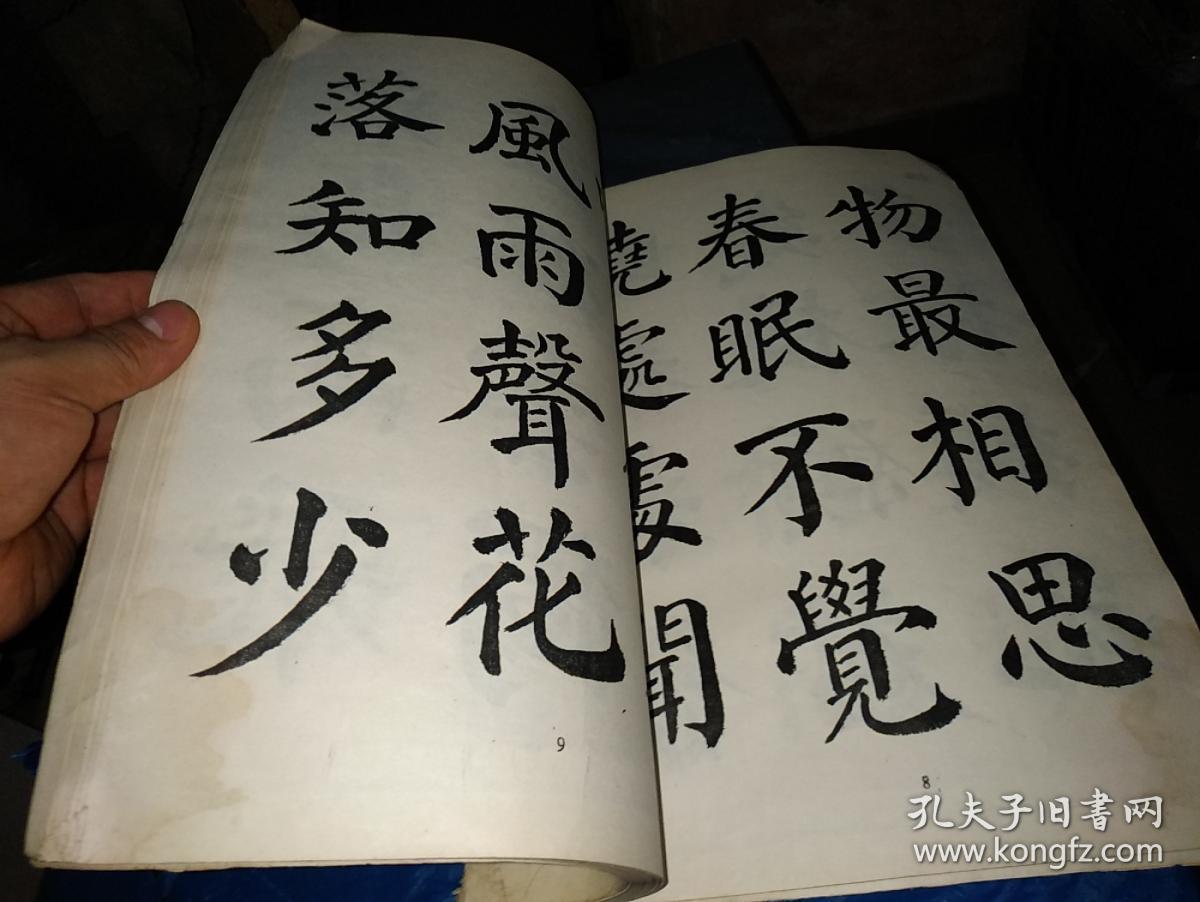 物最相思
春眠不覺
曉處處聞
8
風雨聲花
落知多少
9
孔夫子旧书网
www.kongfz.com